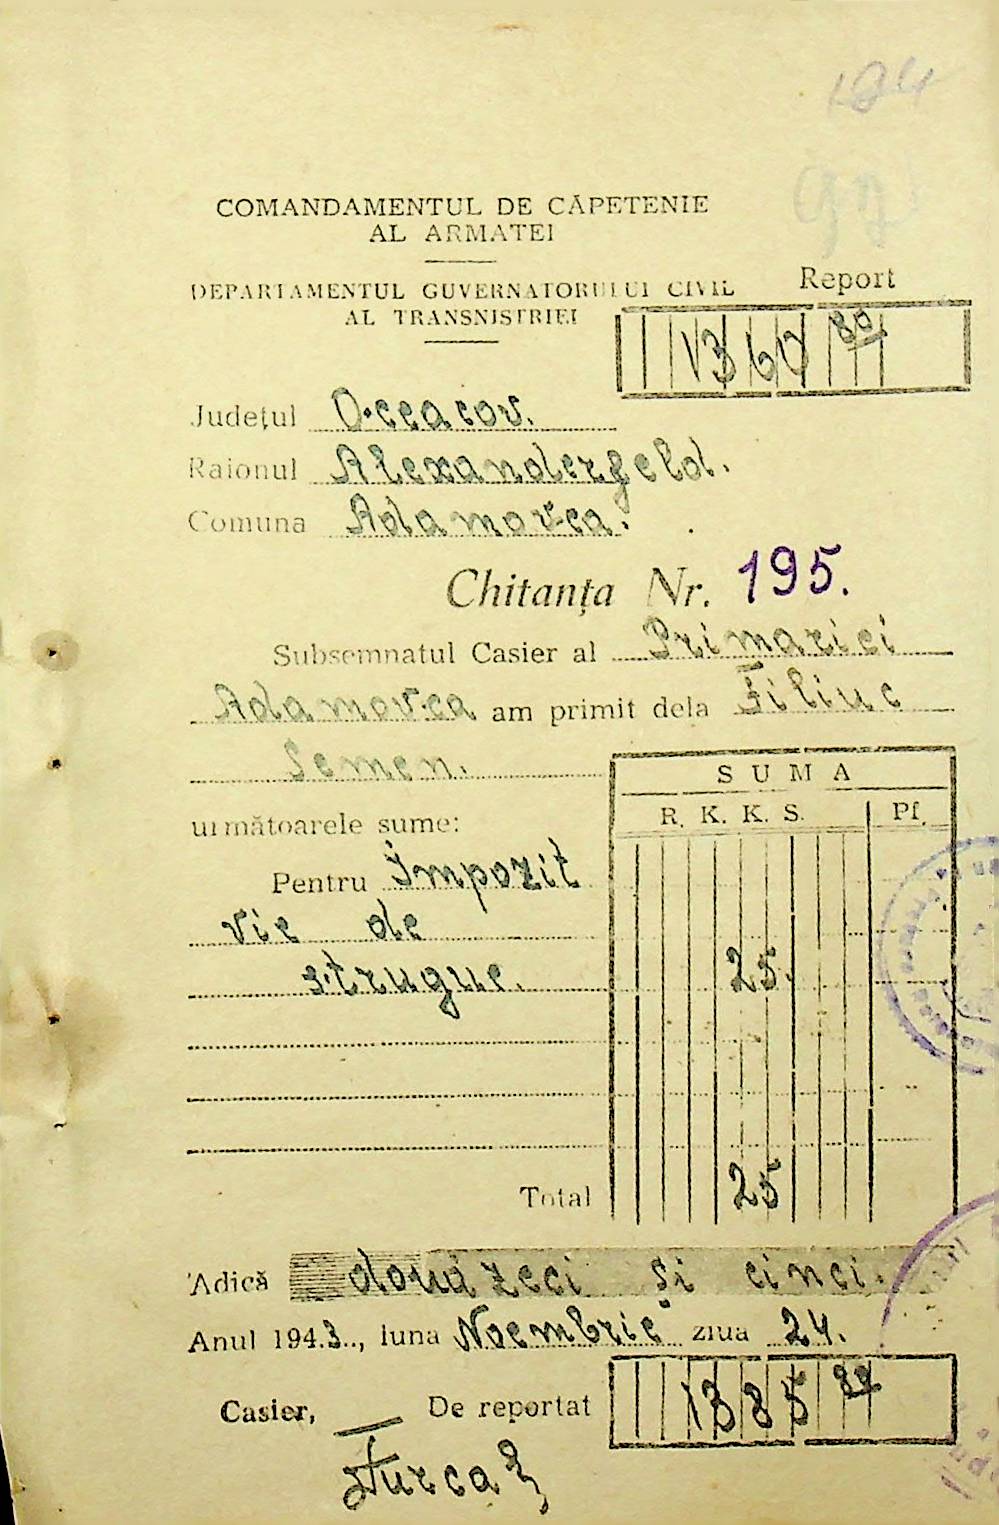 194
97
COMANDAMENTUL DE CĂPETENIE
AL ARMATEI
DEPARTAMENTUL GUVERNATORULUI CIVIL
AL TRANSNISTRIEI
Report
1360 80
Județul Oceacov.
Raionul Alexanderfeld.
Comuna Adamovca.
Chitanța Nr. 195.
Subsemnatul Casier al Primariei
Adamovca am primit dela Filiuc
Semen.
SUMA
următoarele sume:
R. K. K. S. Pf.
Pentru Impozit
vie de
strugue. 25.
Total 25
Adică douăzeci și cinci.
Anul 1943.., luna Noembrie ziua 24.
Casier, De reportat 1385 80
Turca